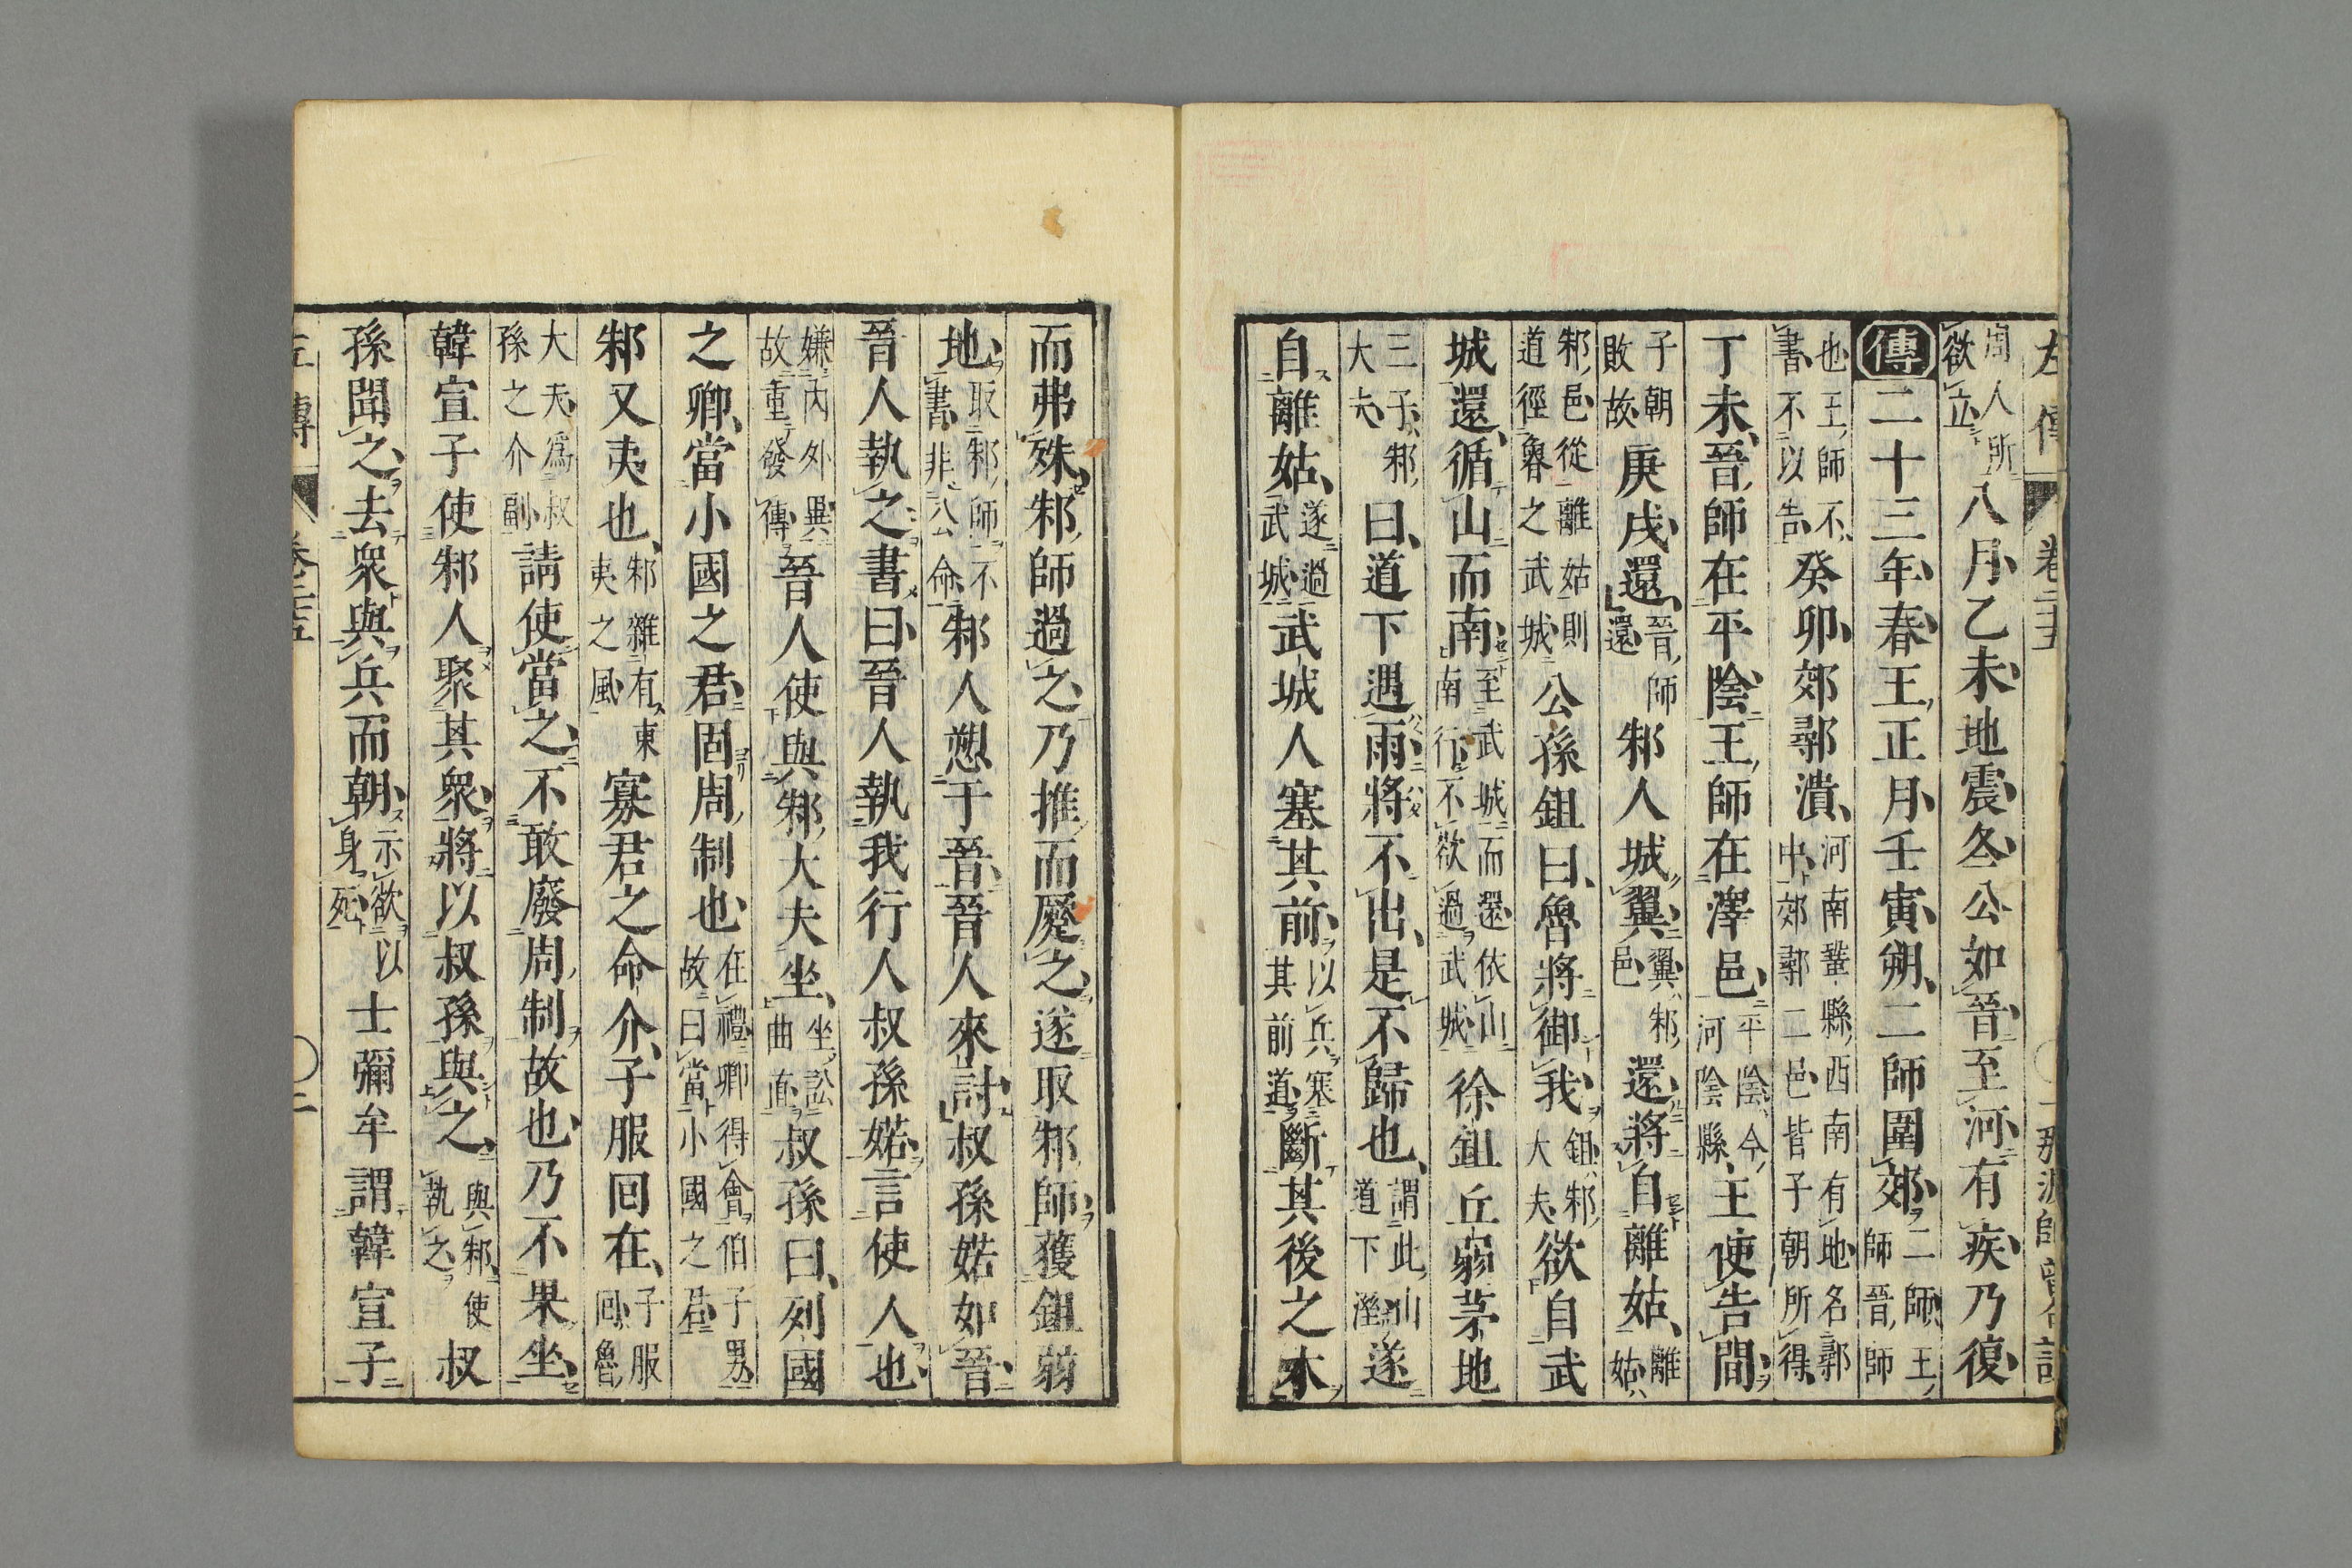 左傳 卷二十五 一
周人所欲立八月乙未地震冬公如晉至河有疾乃復
傳二十三年春王正月壬寅朔二師圍郊二師王師晉師
也王師不書不以告癸卯郊鄩潰河南鞏縣西南有地名鄩中郊鄩二邑皆子朝所得
丁未晉師在平陰王師在澤邑平陰今河陰縣王使告閒
子朝敗故庚戌還晉師還邾人城翼翼邾邑還將自離姑離姑
邾邑從離姑則道徑魯之武城公孫鉏曰魯將御我鉏邾大夫欲自武
城還循山而南至武城而還依山南行不欲過武城徐鉏丘弱茅地
三子邾大夫曰道下遇雨將不出是不歸也謂此山道下溼遂
自離姑遂過武城武城人塞其前以兵塞其前道斷其後之木
而弗殊邾師過之乃推而蹷之遂取邾師獲鉏弱
地取邾師不書非公命邾人愬于晉晉人來討叔孫婼如晉
晉人執之書曰晉人執我行人叔孫婼言使人也
嫌內外異故重發傳晉人使與邾大夫坐坐訟曲直叔孫曰列國
之卿當小國之君固周制也在禮卿得會伯子男故曰當小國之君
邾又夷也邾雜有東夷之風寡君之命介子服回在子服回魯
大夫爲叔孫之介副請使當之不敢廢周制故也乃不果坐
韓宣子使邾人聚其衆將以叔孫與之與邾使執之叔
孫聞之去衆與兵而朝示欲以身死士彌牟謂韓宣子
左傳 卷二十五 二